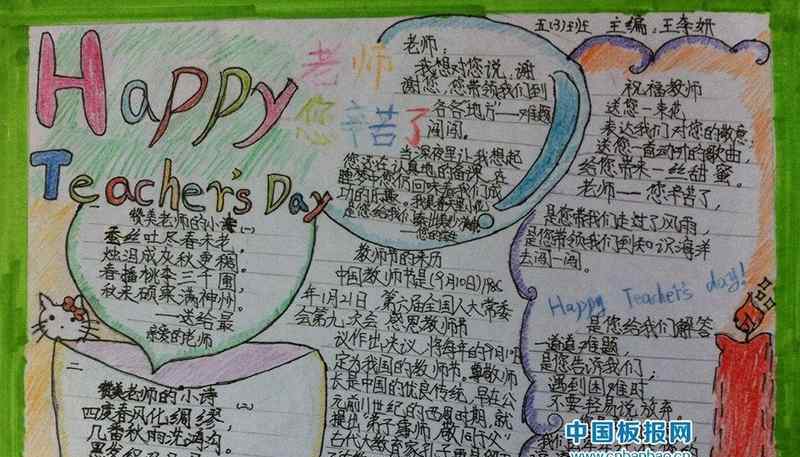 五(3)班 主编:王条妍
Happy
Teacher's Day
老师
您辛苦了
老师:
我想对您说:谢
谢您,您带领我们到
各各地方"——难题
闯闯。
当深夜里让我想起
您还在认真地备课,在
睡梦中您仍回味着我们成
功的乐趣。
——您的
赞美老师的小诗(一)
蚕丝吐尽春未老,
烛泪成灰秋更稠。
春播桃李三千圃,
秋来硕果满神州。
——送给最
亲爱的老师
二
赞美老师的小诗(二)
四度春风化绸缪,
几番秋雨洗鸿沟。
教师节的来历
中国教师节是(9月10日)1985
年1月21日,第六届全国人大常委
会第九次会
教师节
议作出决议,将每年的9月10日
定为我国的教师节。尊敬师
长是中国的优良传统,早在公
元前11世纪的西周时期,就
提出"弟子事师,敬同于父"
古代大教育家孔子
祝福教师
送您一束花
表达我们对您的敬意;
送您一首动听的歌曲,
给您带来一丝甜蜜。
老师——您辛苦了,
是您带我们走过了风雨,
是您带领我们到知识海洋
去闯一闯。
Happy Teacher's day!
是您给我们解答
一道道难题,
是您告诉我们,
遇到困难时
不要轻易说放弃
中国板报网
www.cnbanbao.cn